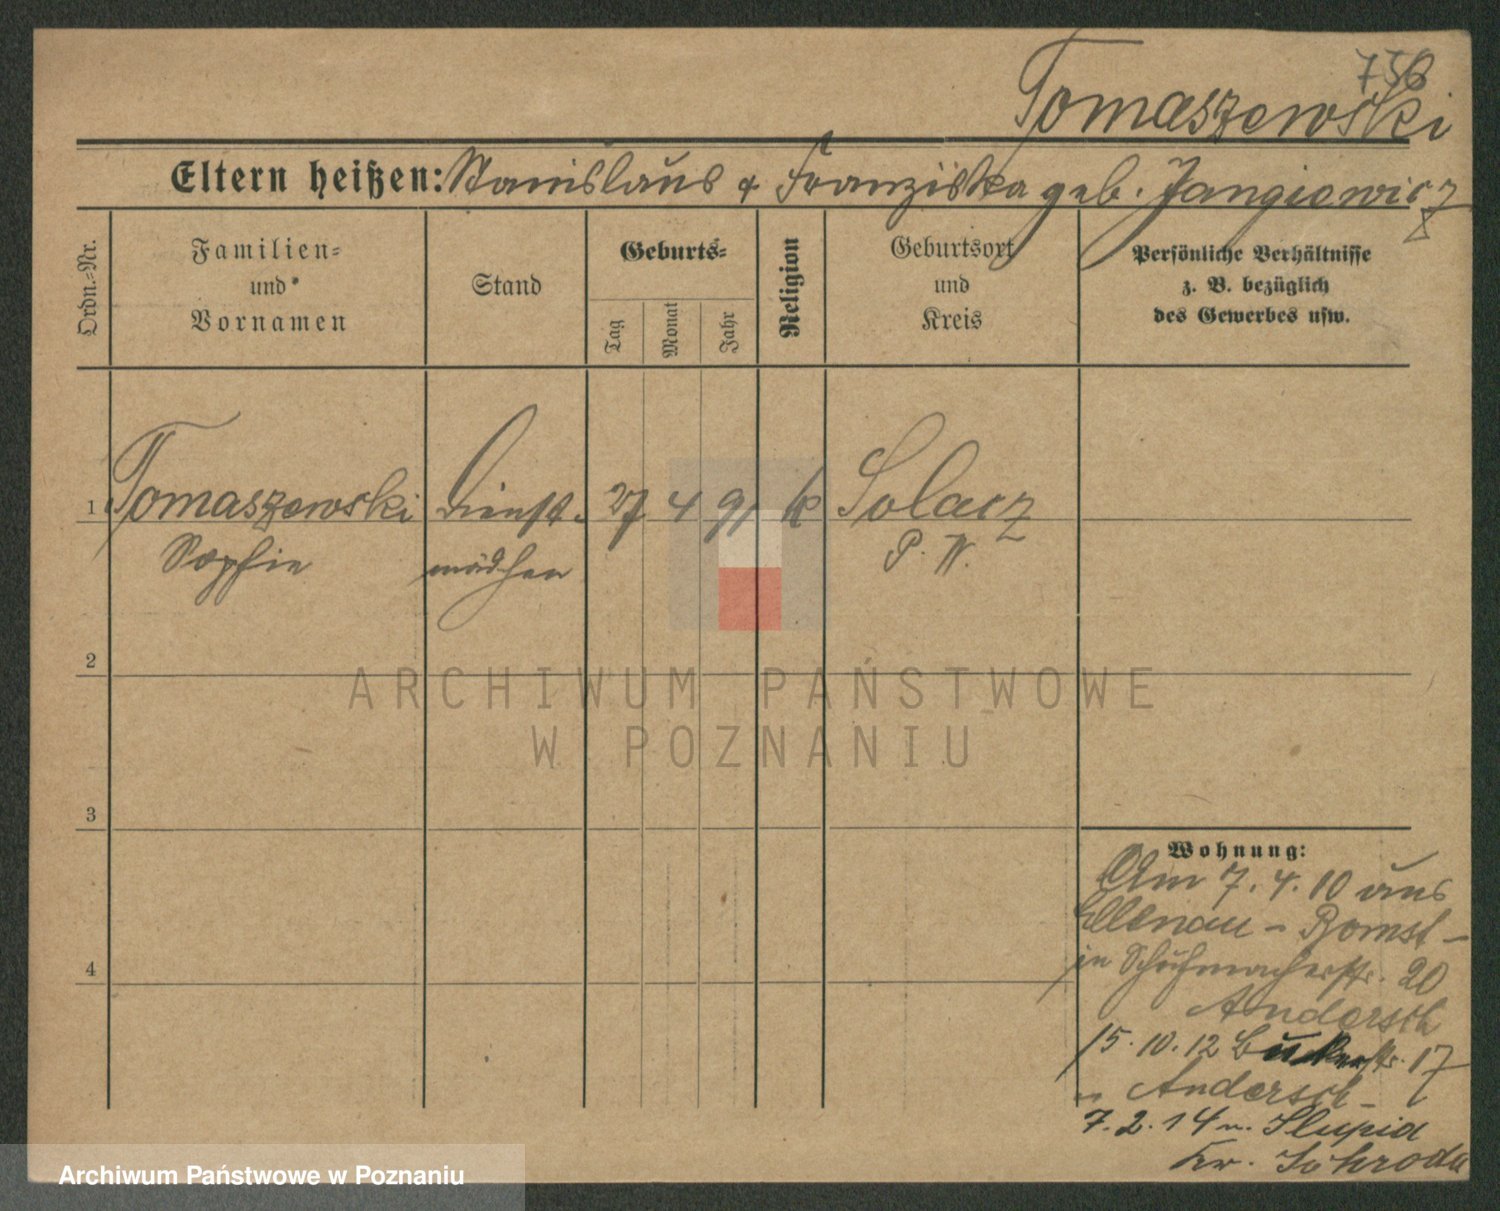 736
Tomaszewski
Eltern heißen: Stanislaus & Franziska geb. Jangiewicz
Ordn.-Nr.
Familien-
und
Vornamen
Stand
Geburts-
Tag
Monat
Jahr
Religion
Geburtsort
und
Kreis
Persönliche Verhältnisse
z. B. bezüglich
des Gewerbes usw.
1 Tomaszewski Dienst- 27 4 91 k Solacz
Sophie mädchen P. W.
2
ARCHIWUM PAŃSTWOWE
W POZNANIU
3
Wohnung:
Am 7. 4. 10 aus
Ellenau - Bomst -
in Schuhmacherstr. 20
Andersch
15. 10. 12 Bukerstr. 17
Andersch -
7. 2. 14 n. Slupia
Kr. Schroda
4
Archiwum Państwowe w Poznaniu